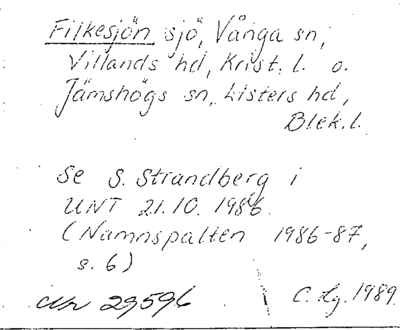 Filkesjön sjö, Vånga sn,
Villands hd, Krist. l. o.
Jämshögs sn, Listers hd,
Blek. l.
Se S. Strandberg i
UNT 21.10. 1986.
(Namnspalten 1986-87,
s. 6)
29596 C. Lg. 1989.